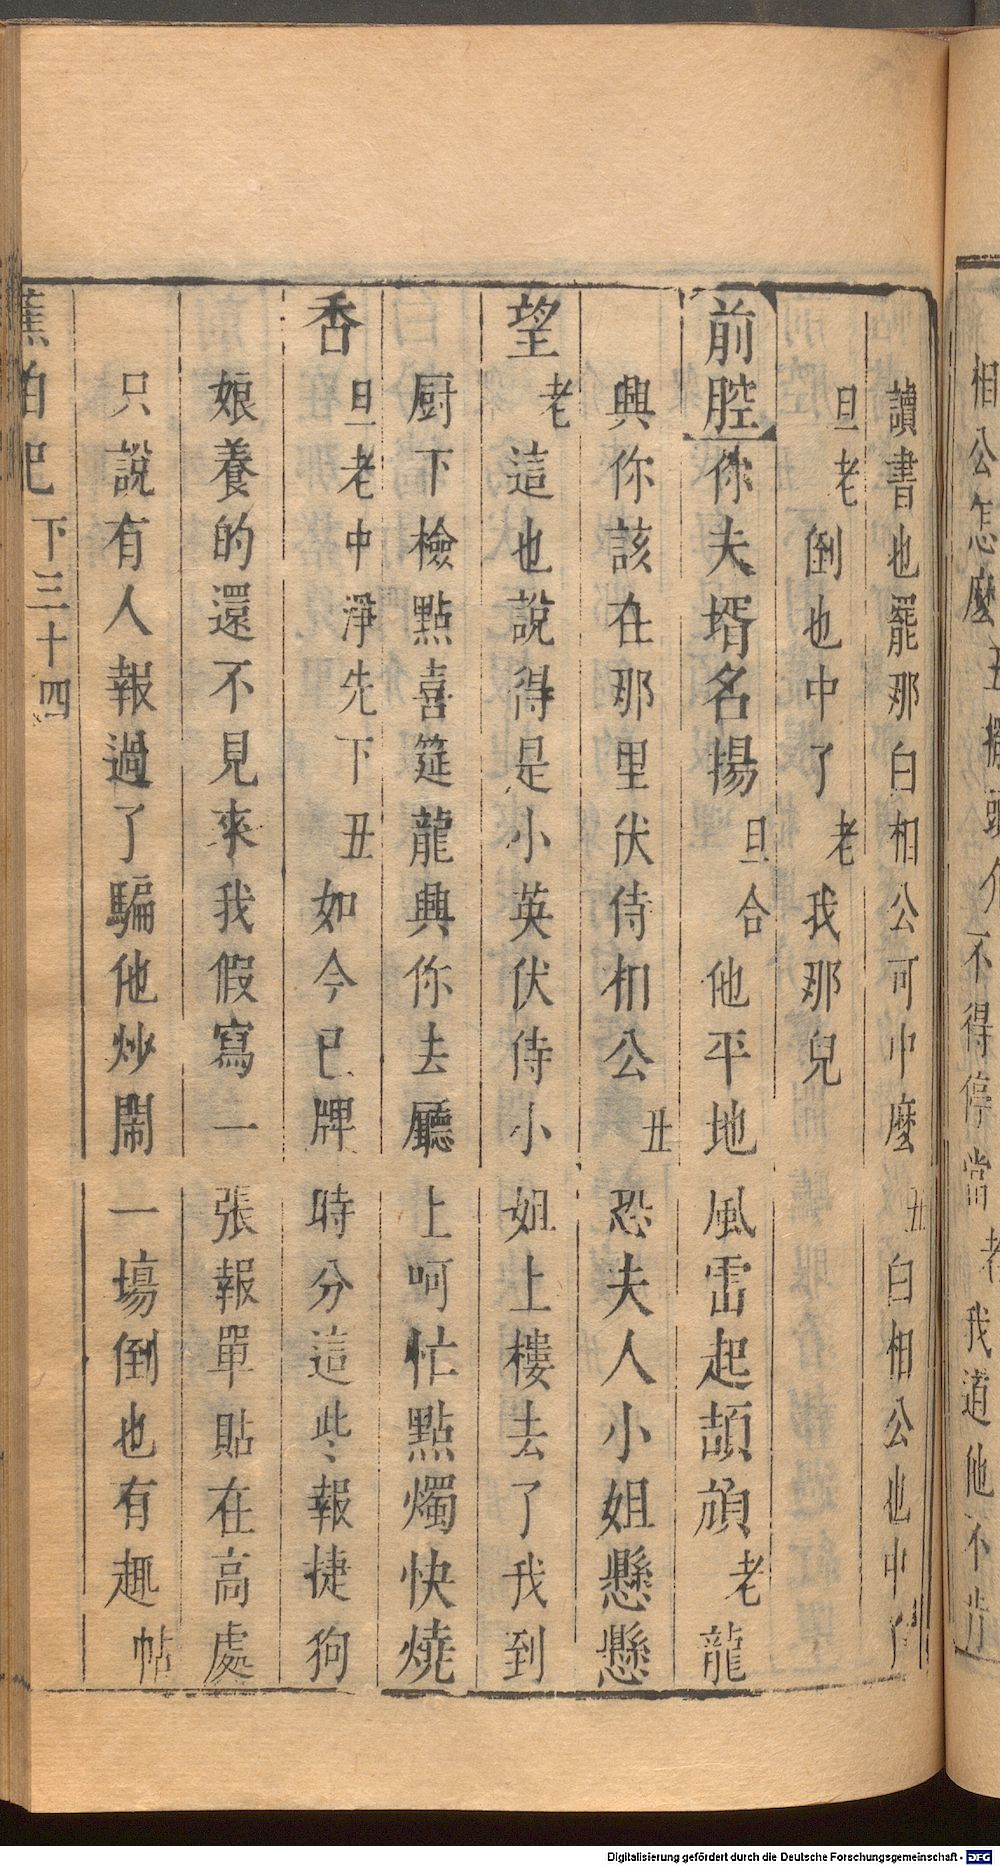 相公怎麼丑 頭介不得停當老我道他不肯
讀書也罷那白相公可中麼丑白相公也中了
旦老倒也中了老我那兒
前腔你夫壻名揚旦合他平地風雷起頡頏老龍
興你該在那里伏侍相公丑恐夫人小姐懸懸
望老這也說得是小英伏侍小姐上樓去了我到
厨下檢點喜筵龍興你去廳上呵忙點燭快燒
香旦老中淨先下丑如今已牌時分這些報捷狗
娘養的還不見來我假寫一張報單貼在高處
只說有人報過了騙他炒鬧一塲倒也有趣帖
蕉帕記 下三十四
Digitalisierung gefördert durch die Deutsche Forschungsgemeinschaft - DFG